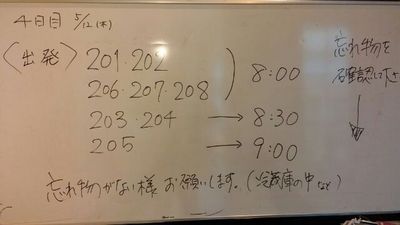 4日目 5/12(木)
〈出発〉 201・202
206・207・208 ) 8:00
203・204 → 8:30
205 → 9:00
忘れ物を
確認して下さい
忘れ物がない様お願いします。(冷蔵庫の中など)